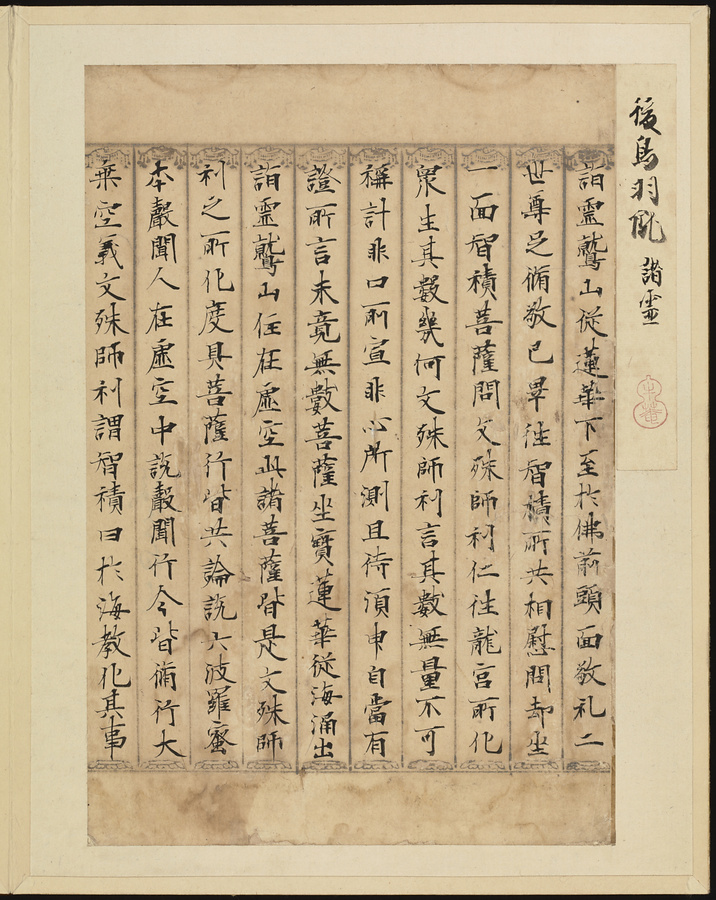 後鳥羽院 諸霊
詣霊鷲山従蓮華下至於佛前頭面敬礼二
世尊足脩敬已畢往智積所共相慰問却坐
一面智積菩薩問文殊師利仁往龍宮所化
衆生其數幾何文殊師利言其數無量不可
稱計非口所宣非心所測且待須申自當有
證所言未竟無數菩薩坐寶蓮華従海涌出
詣霊鷲山住在虚空此諸菩薩皆是文殊師
利之所化度具菩薩行皆共論説六波羅蜜
本聲聞人在虚空中説聲聞行今皆脩行大
乗空義文殊師利謂智積曰於海教化其事